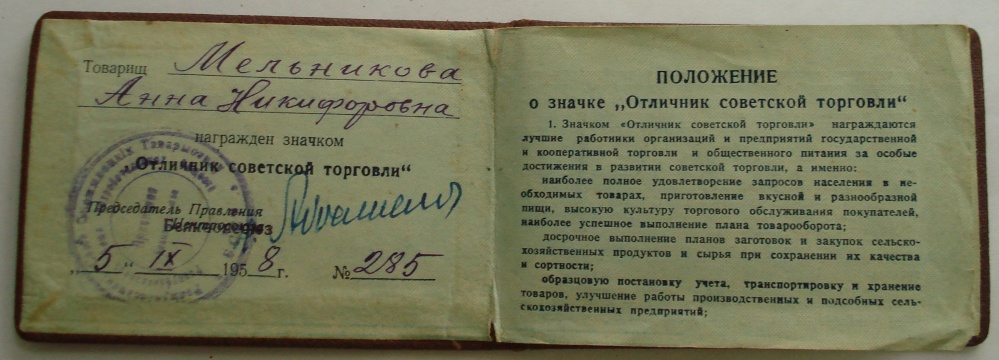 Товарищ Мельникова
Анна Никифоровна
награжден значком
„Отличник советской торговли“
Председатель Правления
„5“ IX 1958 г. № 285
ПОЛОЖЕНИЕ
о значке „Отличник советской торговли“
1. Значком «Отличник советской торговли» награждаются
лучшие работники организаций и предприятий государственной
и кооперативной торговли и общественного питания за особые
достижения в развитии советской торговли, а именно:
наиболее полное удовлетворение запросов населения в не-
обходимых товарах, приготовление вкусной и разнообразной
пищи, высокую культуру торгового обслуживания покупателей,
наиболее успешное выполнение плана товарооборота;
досрочное выполнение планов заготовок и закупок сельско-
хозяйственных продуктов и сырья при сохранении их качества
и сортности;
образцовую постановку учета, транспортировку и хранение
товаров, улучшение работы производственных и подсобных сель-
скохозяйственных предприятий;